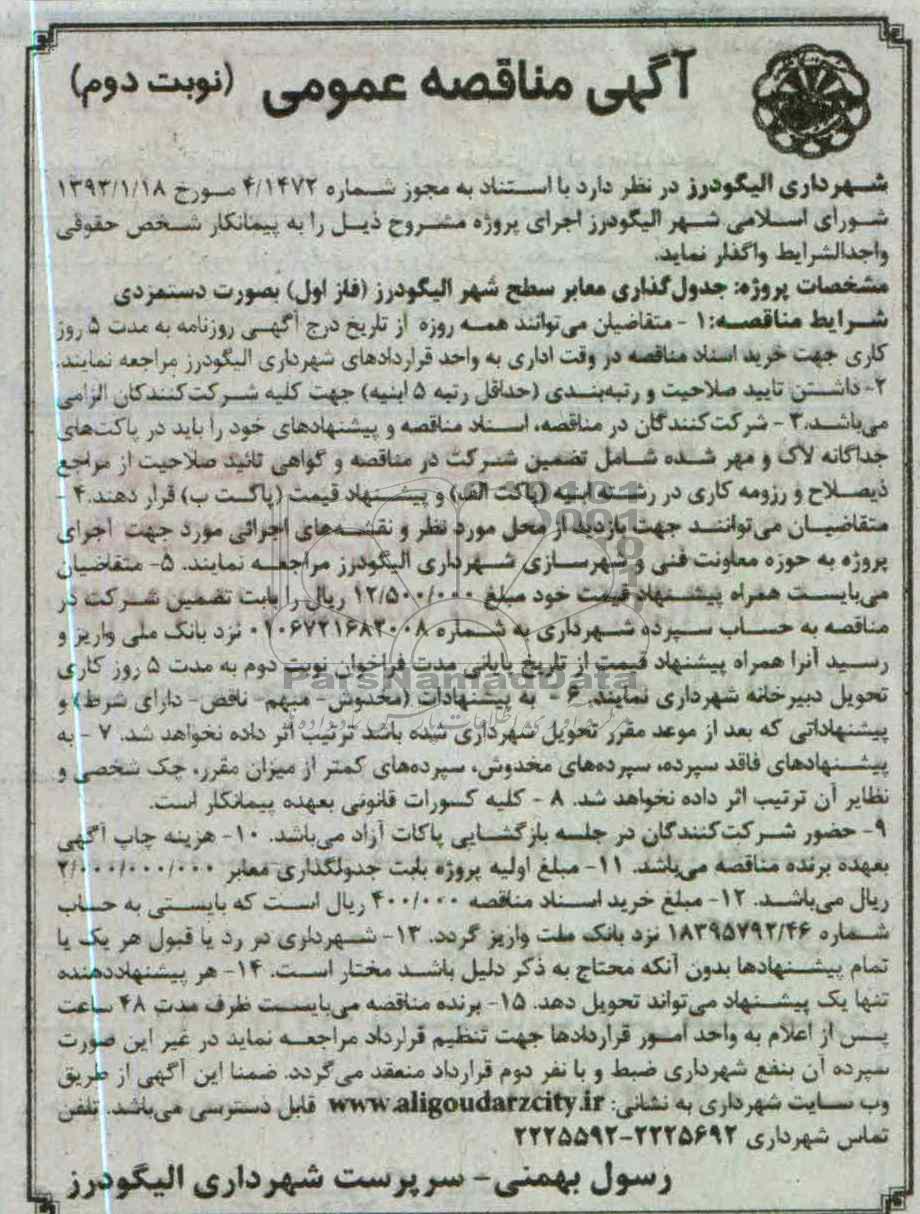 آگهی مناقصه عمومی (نوبت دوم)
شهرداری الیگودرز در نظر دارد با استناد به مجوز شماره ۴/۱۴۷۲ مورخ ۱۳۹۳/۱/۱۸
شورای اسلامی شهر الیگودرز اجرای پروژه مشروح ذیل را به پیمانکار شخص حقوقی
واجدالشرایط واگذار نماید.
مشخصات پروژه: جدول‌گذاری معابر سطح شهر الیگودرز (فاز اول) بصورت دستمزدی
شرایط مناقصه: ۱ - متقاضیان می‌توانند همه روزه از تاریخ درج آگهی روزنامه به مدت ۵ روز
کاری جهت خرید اسناد مناقصه در وقت اداری به واحد قراردادهای شهرداری الیگودرز مراجعه نمایند.
۲- داشتن تایید صلاحیت و رتبه‌بندی (حداقل رتبه ۵ ابنیه) جهت کلیه شرکت‌کنندگان الزامی
می‌باشد. ۳ - شرکت‌کنندگان در مناقصه، اسناد مناقصه و پیشنهادهای خود را باید در پاکت‌های
جداگانه لاک و مهر شده شامل تضمین شرکت در مناقصه و گواهی تائید صلاحیت از مراجع
ذیصلاح و رزومه کاری در رشته ابنیه (پاکت الف) و پیشنهاد قیمت (پاکت ب) قرار دهند. ۴ -
متقاضیان می‌توانند جهت بازدید از محل مورد نظر و نقشه‌های اجرائی مورد جهت اجرای
پروژه به حوزه معاونت فنی و شهرسازی شهرداری الیگودرز مراجعه نمایند. ۵- متقاضیان
می‌بایست همراه پیشنهاد قیمت خود مبلغ ۱۲/۵۰۰/۰۰۰ ریال را بابت تضمین شرکت در
مناقصه به حساب سپرده شهرداری به شماره ۰۱۰۶۷۲۱۶۸۳۰۰۸ نزد بانک ملی واریز و
رسید آنرا همراه پیشنهاد قیمت از تاریخ پایانی مدت فراخوان نوبت دوم به مدت ۵ روز کاری
تحویل دبیرخانه شهرداری نمایند. ۶ - به پیشنهادات (مخدوش- مبهم- ناقص- دارای شرط) و
پیشنهاداتی که بعد از موعد مقرر تحویل شهرداری شده باشد ترتیب اثر داده نخواهد شد. ۷ - به
پیشنهادهای فاقد سپرده، سپرده‌های مخدوش، سپرده‌های کمتر از میزان مقرر، چک شخصی و
نظایر آن ترتیب اثر داده نخواهد شد. ۸ - کلیه کسورات قانونی بعهده پیمانکار است.
۹- حضور شرکت‌کنندگان در جلسه بازگشایی پاکات آزاد می‌باشد. ۱۰- هزینه چاپ آگهی
بعهده برنده مناقصه می‌باشد. ۱۱- مبلغ اولیه پروژه بابت جدولگذاری معابر ۲/۰۰۰/۰۰۰/۰۰۰
ریال می‌باشد. ۱۲- مبلغ خرید اسناد مناقصه ۴۰۰/۰۰۰ ریال است که بایستی به حساب
شماره ۱۸۳۹۵۷۹۲/۴۶ نزد بانک ملت واریز گردد. ۱۳- شهرداری در رد یا قبول هر یک یا
تمام پیشنهادها بدون آنکه محتاج به ذکر دلیل باشد مختار است. ۱۴- هر پیشنهاددهنده
تنها یک پیشنهاد می‌تواند تحویل دهد. ۱۵- برنده مناقصه می‌بایست ظرف مدت ۴۸ ساعت
پس از اعلام به واحد امور قراردادها جهت تنظیم قرارداد مراجعه نماید در غیر این صورت
سپرده آن بنفع شهرداری ضبط و با نفر دوم قرارداد منعقد می‌گردد. ضمنا این آگهی از طریق
وب سایت شهرداری به نشانی: www.aligoudarzcity.ir قابل دسترسی می‌باشد. تلفن
تماس شهرداری ۲۲۲۵۶۹۲-۲۲۲۵۵۹۲
رسول بهمنی- سرپرست شهرداری الیگودرز
ParsNamadData